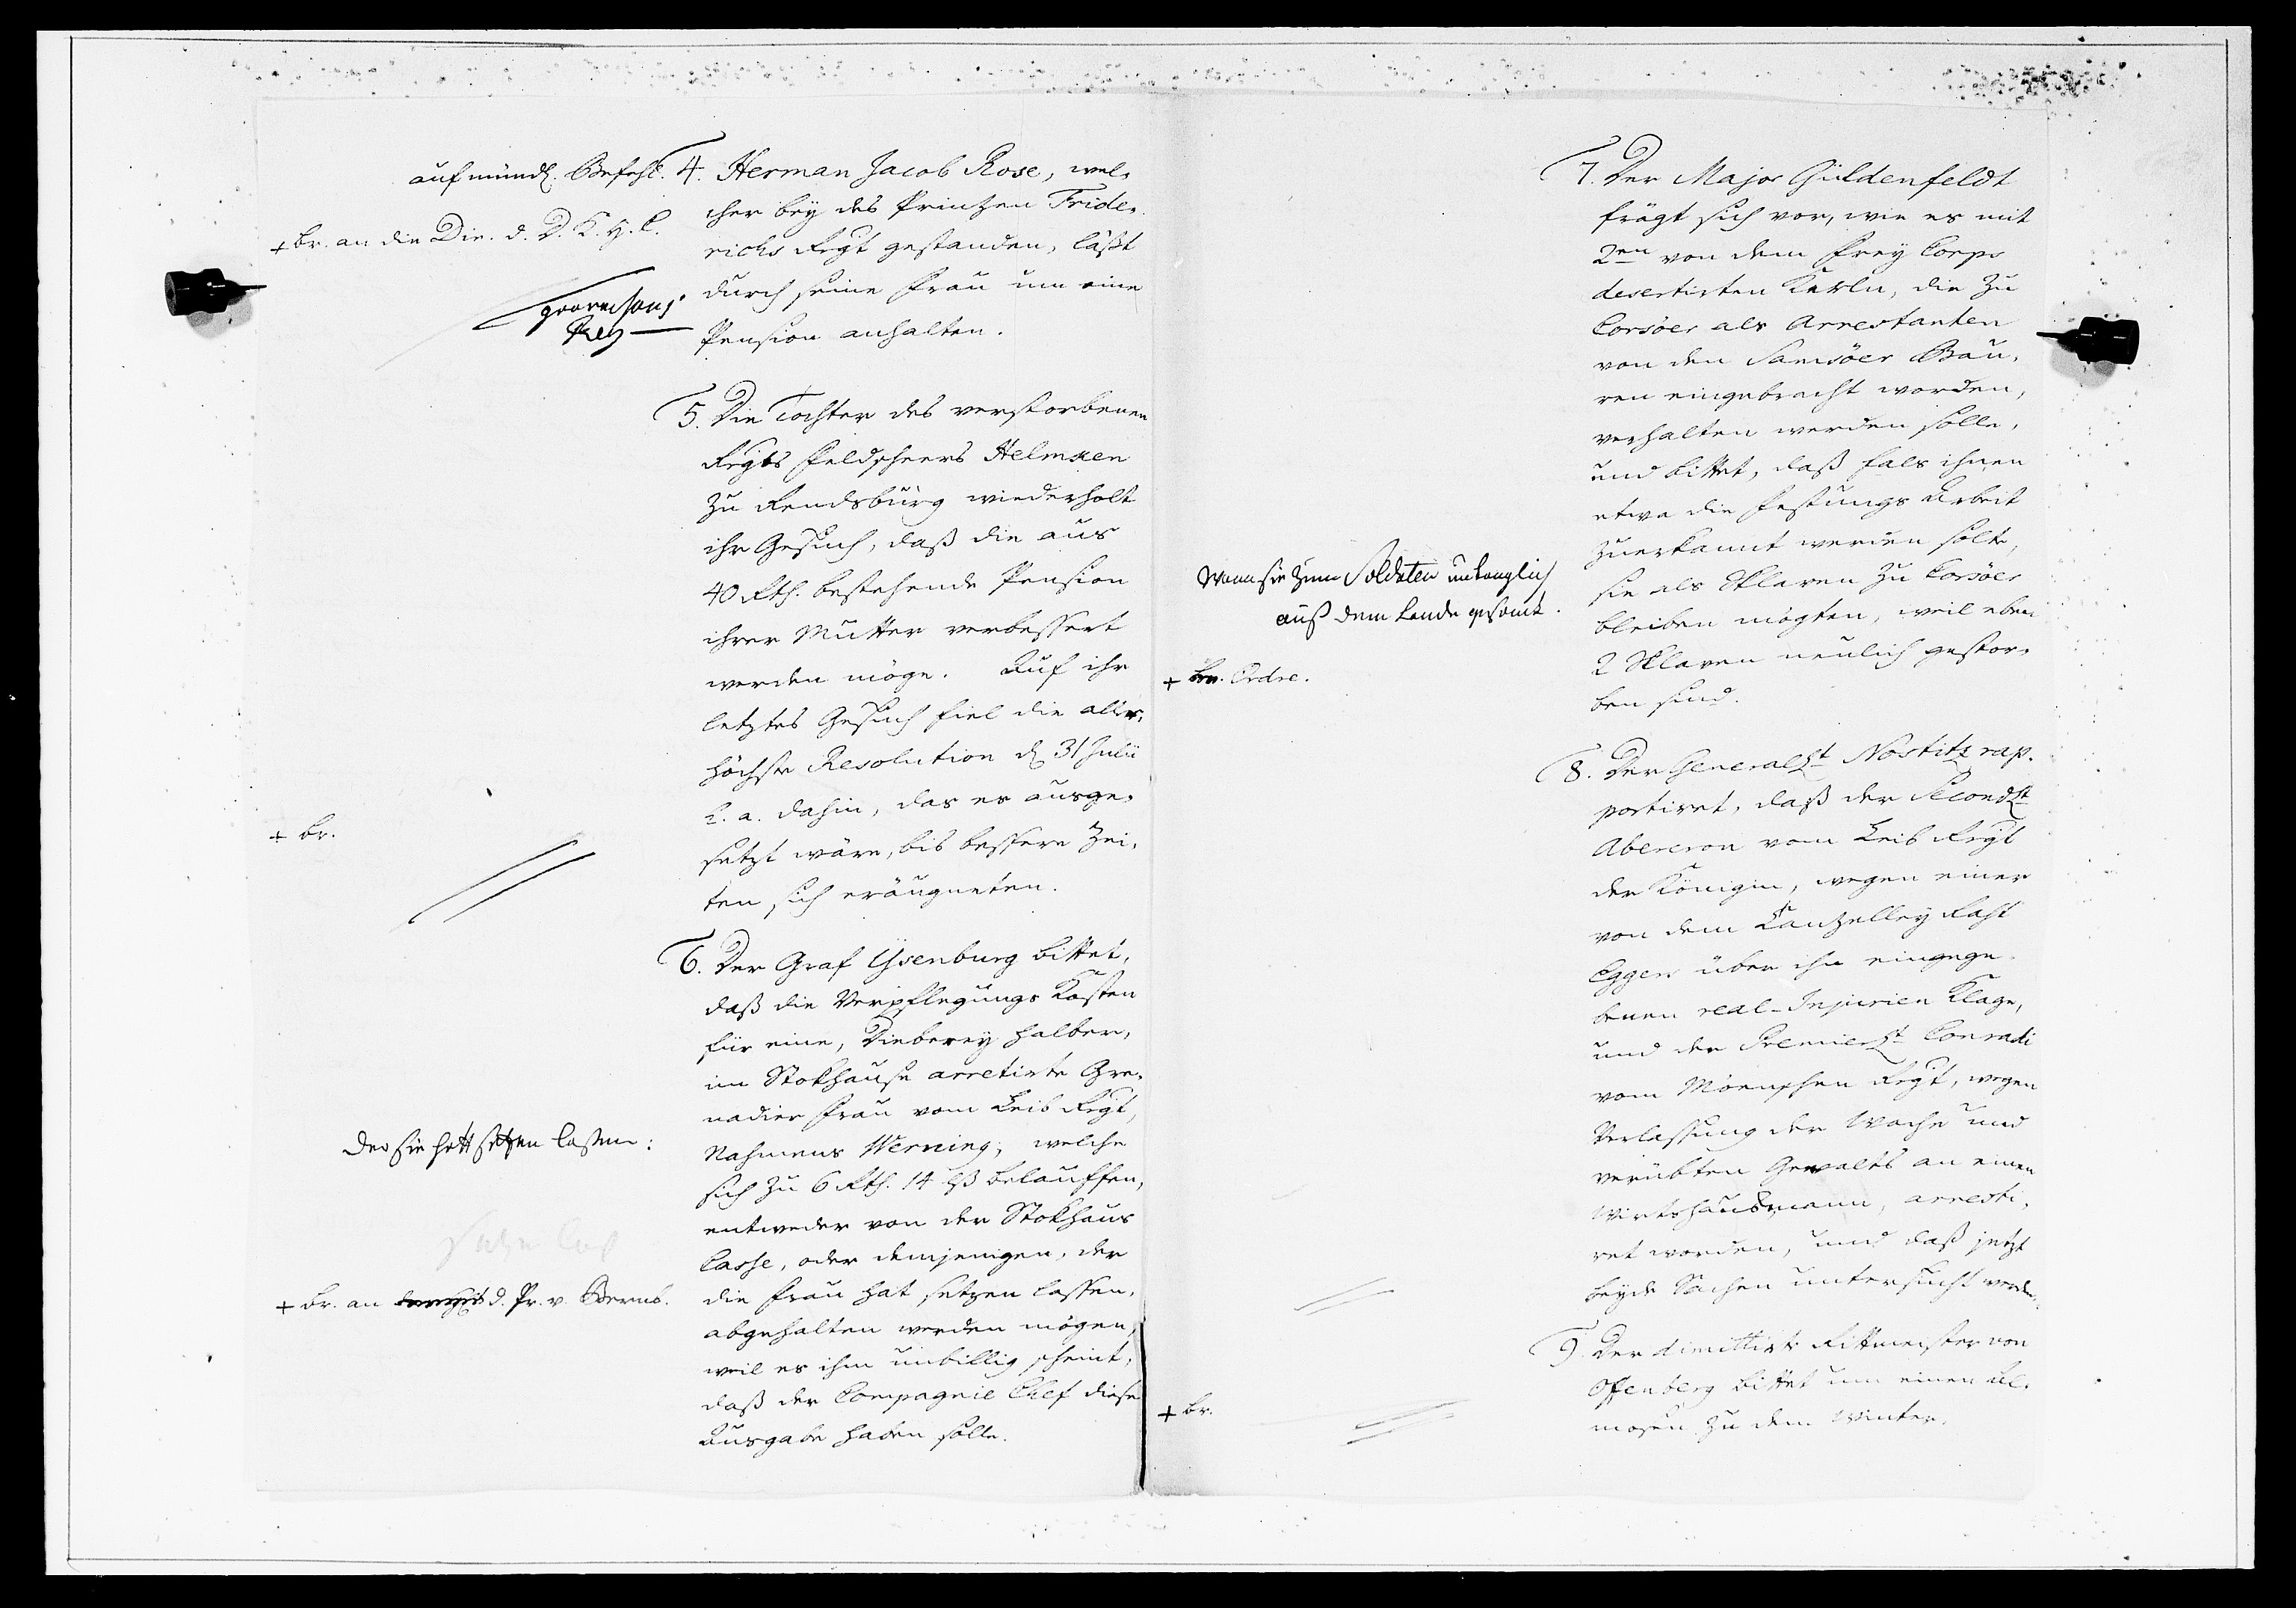 auf mündl. Befehl.
+ br. an die Dir. d. D. K. H. C.
Guarnisons
Reg
4. Herman Jacob Rose, wel-
cher bey des Printzen Fride-
richs Regt gestanden, läßt
durch seine Frau um eine
Pension anhalten.
5. Die Tochter des verstorbenen
Regts Feldscheers Helmsen
zu Rendsburg wiederholt
ihr Gesuch, daß die aus
40 Rth. bestehende Pension
ihrer Mutter verbessert
werden möge. Auf ihr
letztes Gesuch fiel die aller-
höchste Resolution d 31 Julii
h. a. dahin, das es ausge-
setzt wäre, bis bessere Zei-
ten sich eräugneten.
+ br.
6. Der Graf Ysenburg bittet,
daß die Verpflegungs Kosten
für eine, Dieberey halber,
im Stokhause arretirte Gre-
nadier Frau vom Leib Regt,
Nahmens Werning, welche
sich zu 6 Rth. 14 lß belauffen,
entweder von der Stokhaus
Casse, oder demjenigen, der
die Frau hat setzen lassen,
abgehalten werden mögen,
weil es ihm unbillig scheint,
daß der Compagnie Chef diese
Ausgabe haben solle.
der sie hatt setzen laßen:
+ br. an d. Pr. v. Bernb.
7. Der Major Güldenfeldt
frägt sich vor, wie es mit
2en von dem Frey Corps
desertirten Kerln, die zu
Corsöer als Arrestanten
von den Samsöer Bau-
ren eingebracht worden,
verhalten werden solle,
und bittet, daß fals ihnen
etwa die Festungs Arbeit
zuerkannt werden solte,
sie als Sklaven zu Corsöer
bleiben mögten, weil eben
2 Sklaven neulich gestor-
ben sind.
Wenn sie zum Soldaten untauglich
auß dem Lande gesamt.
+ br. Ordre.
8. Der Generallt Nostitz rap-
portiret, daß der Secondlt
Abercron vom Leib Regt
der Königin, wegen einer
von dem Cantzelley Raht
Eggers über ihn eingege-
benen real-Injurien Klage,
und der Premierlt Conradi
vom Möenschen Regt, wegen
Verlassung der Wache und
verübten Gewalts an einen
Wirtshausmann, arresti-
ret worden, und daß jetzt
beyde Sachen untersucht werden.
9. Der dimittirte Rittmeister von
Offenberg bittet um einen Al-
mosen zu dem Winter.
+ br.